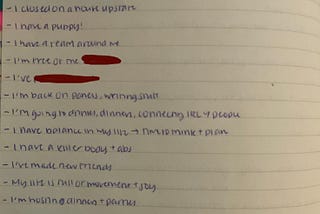 - I closed on a house upstate
- I have a puppy!
- I have a team around me
- I'm free of the
- I've
- I'm back on panels, writing stuff
- I'm going to dinner, dinners, connecting IRL w people
- I have balance in my life → time to think + plan
- I have a killer body + abs
- I've made new friends
- My life is full of movement + joy
- I'm hosting dinners + parties